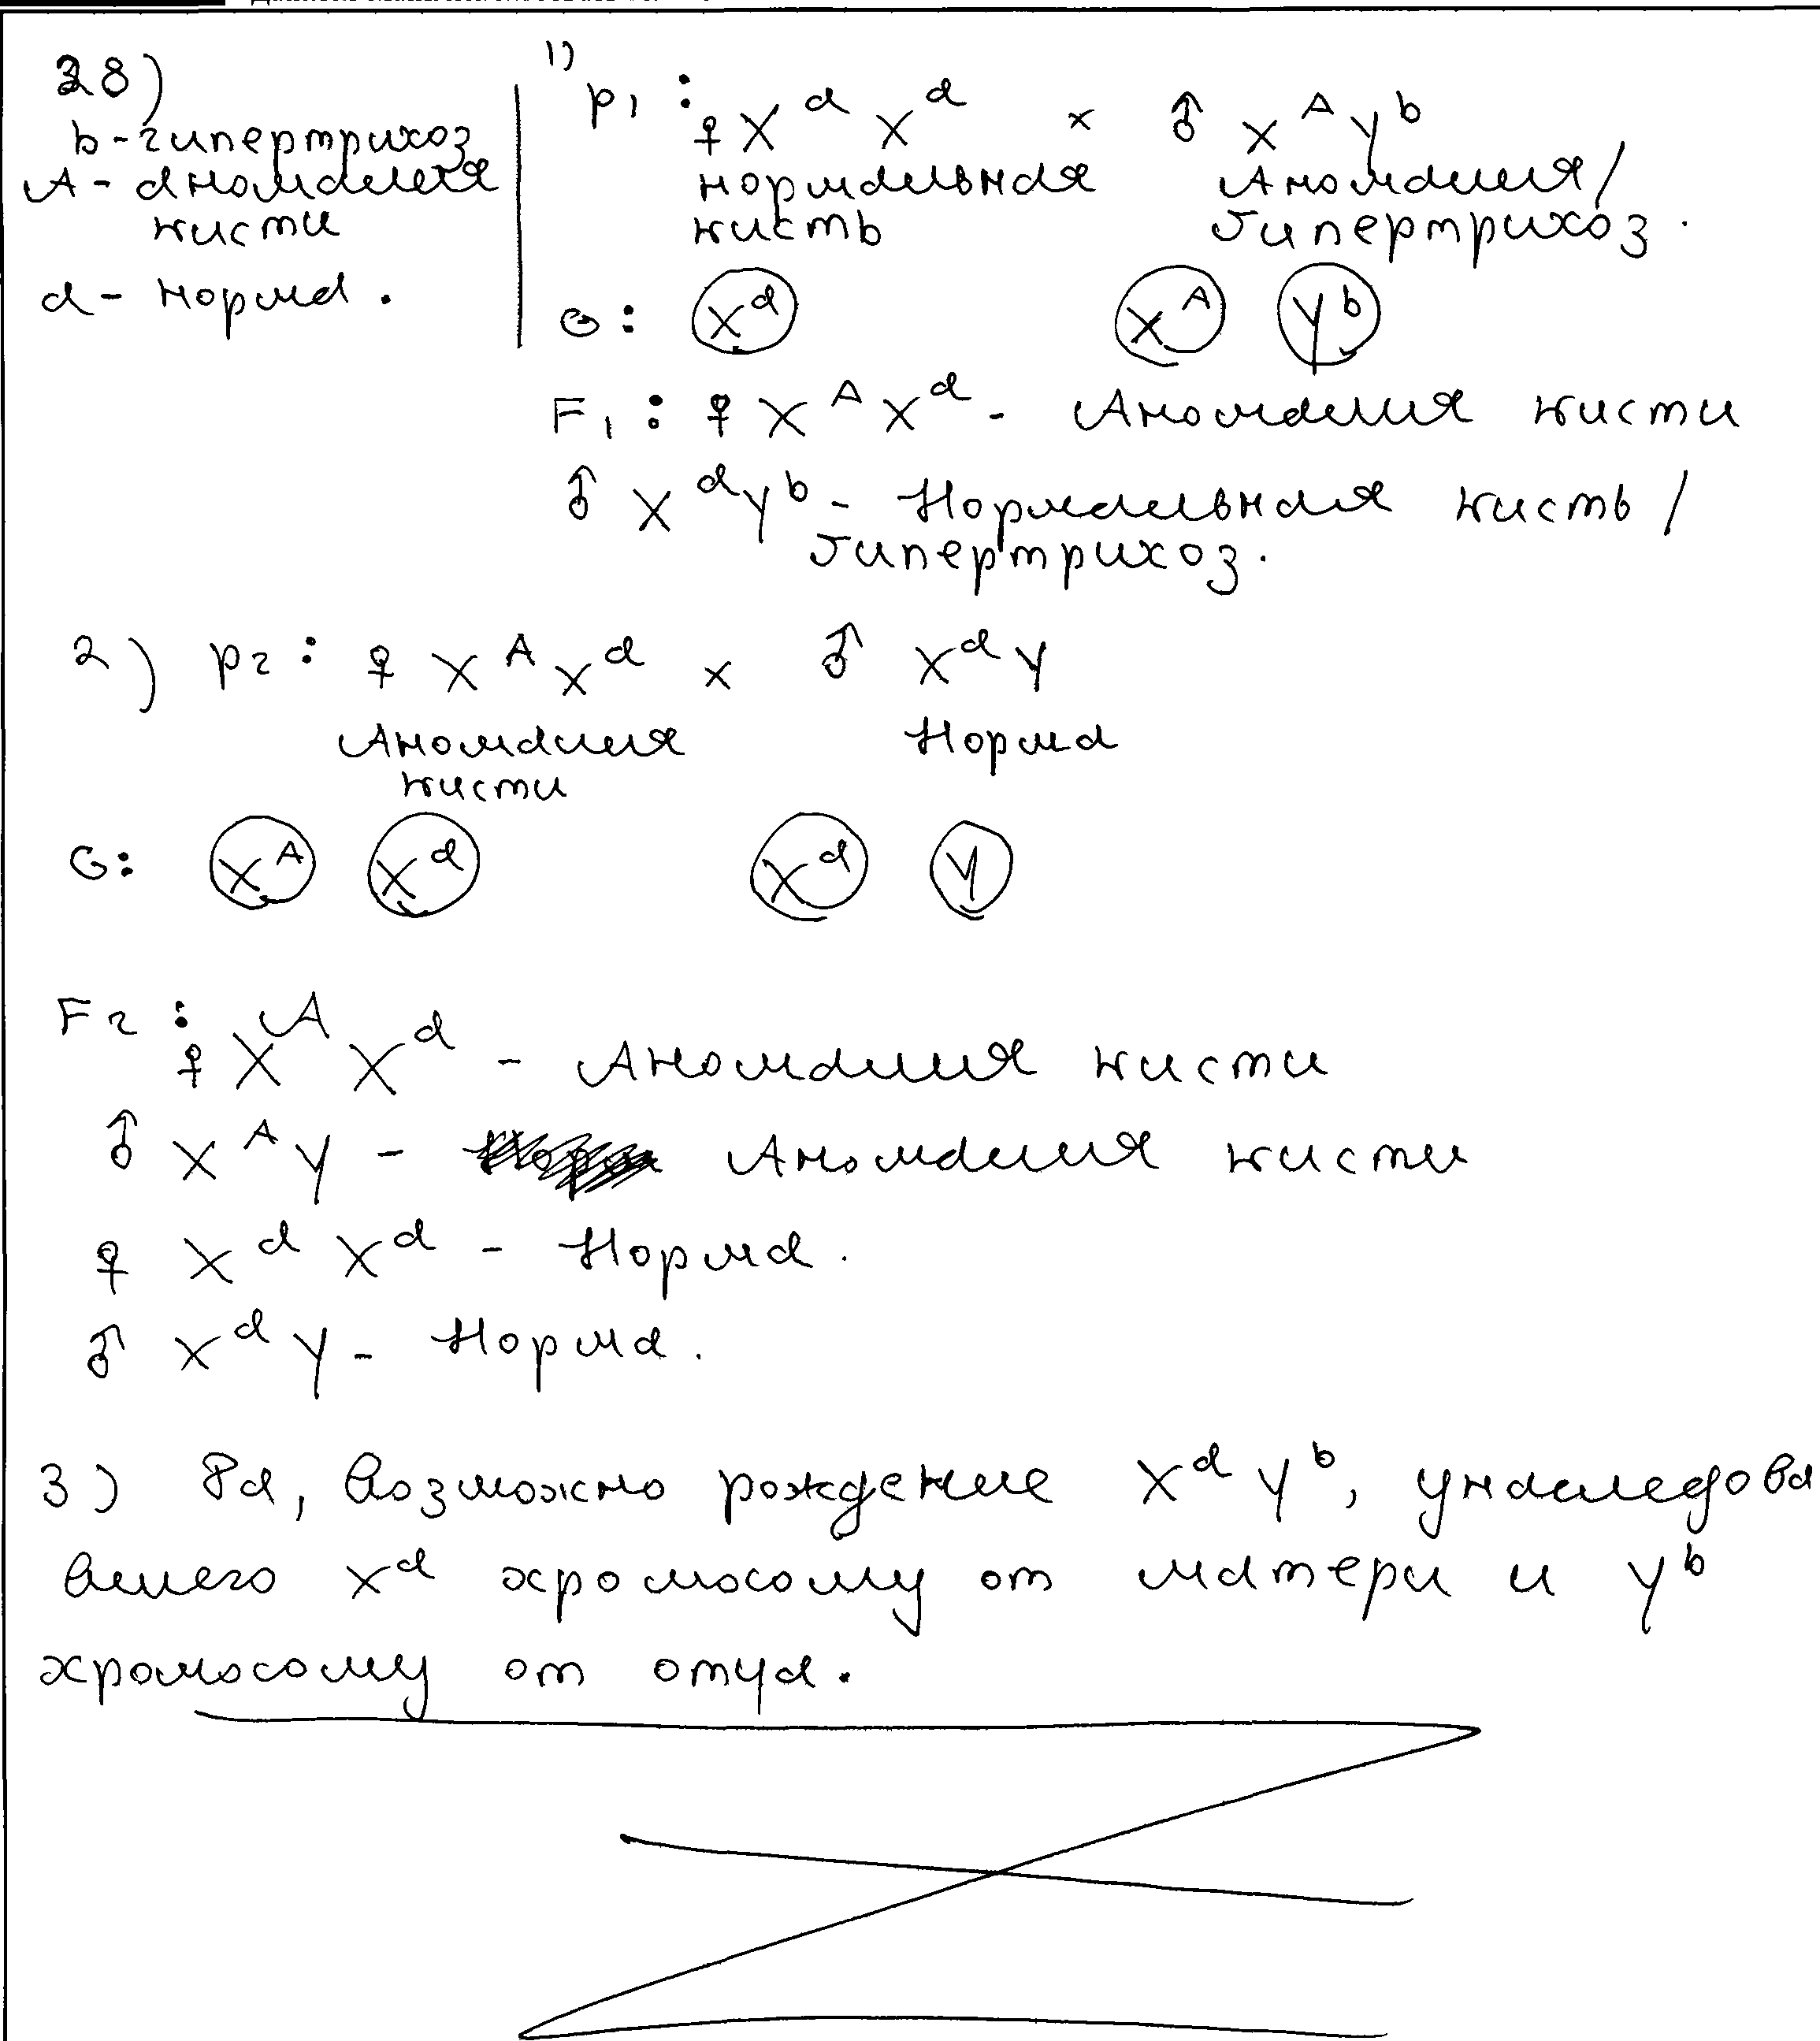 28)
b - гипертрихоз
A - аномалия
кисти
a - норма.
1)
P₁: ♀ Xᵃ Xᵃ × ♂ Xᴬ Yᵇ
нормальная Аномалия/
кисть гипертрихоз.
G: Xᵃ Xᴬ Yᵇ
F₁: ♀ Xᴬ Xᵃ - Аномалия кисти
♂ Xᵃ Yᵇ - Нормальная кисть /
гипертрихоз.
2) P₂: ♀ Xᴬ Xᵃ × ♂ Xᵃ Y
Аномалия Норма
кисти
G: Xᴬ Xᵃ Xᵃ Y
F₂:
♀ Xᴬ Xᵃ - Аномалия кисти
♂ Xᴬ Y - Аномалия кисти
♀ Xᵃ Xᵃ - Норма.
♂ Xᵃ Y - Норма.
3) Да, возможно рождение Xᵃ Yᵇ, унаследова
вшего Xᵃ хромосому от матери и Yᵇ
хромосому от отца.